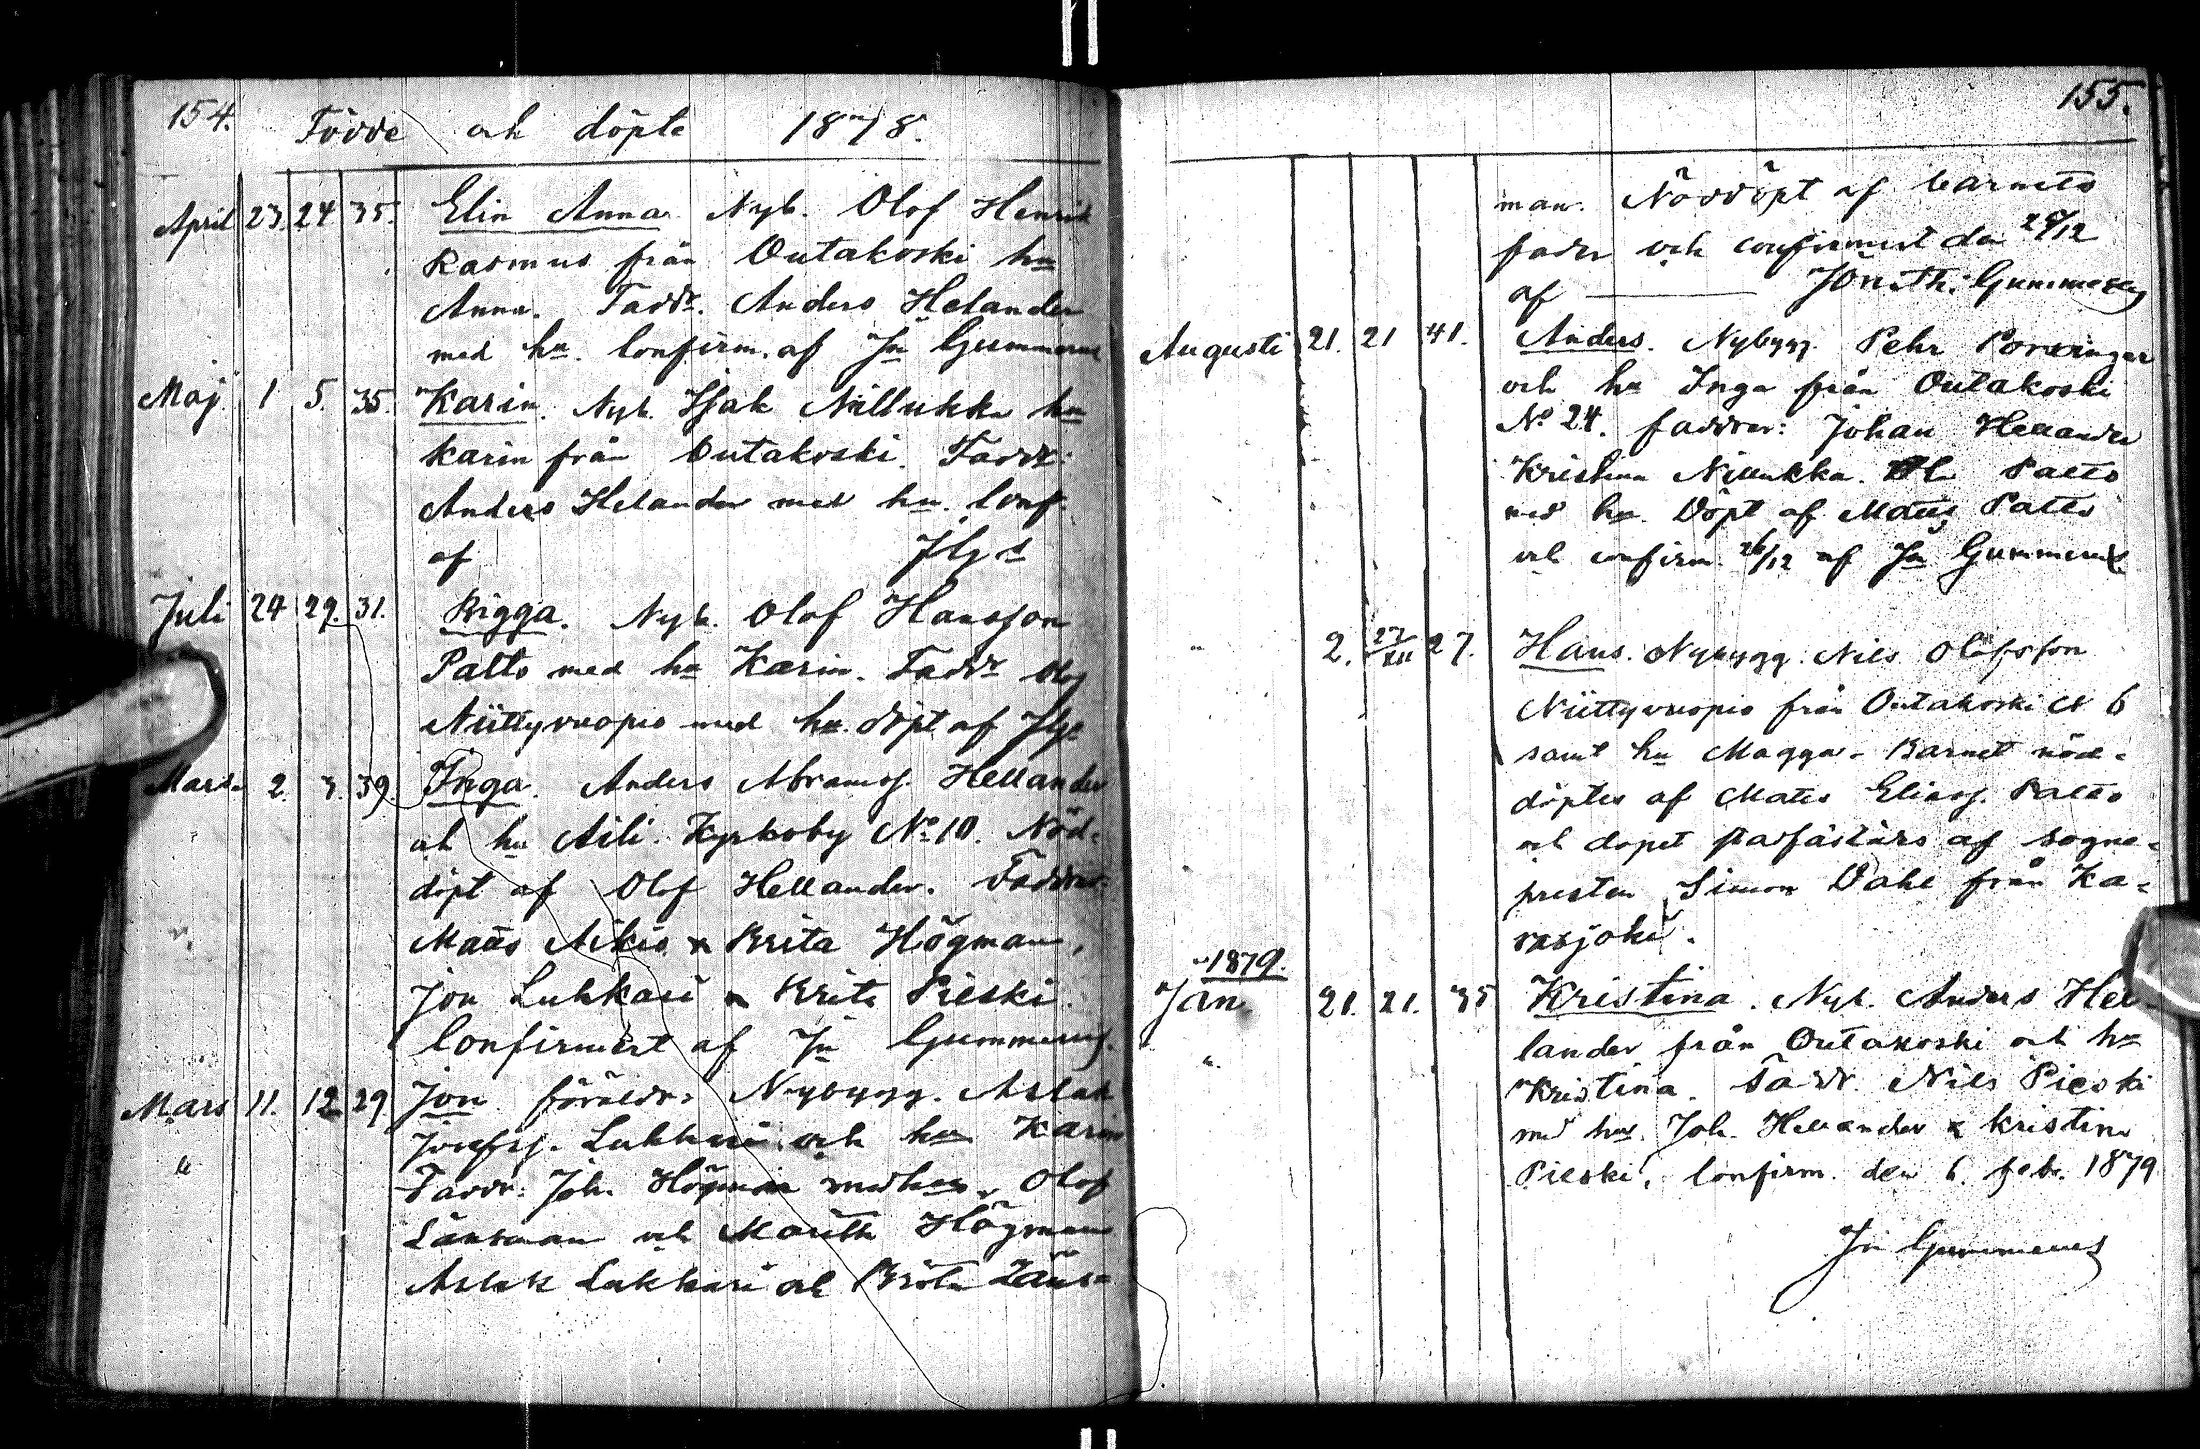 154.
Födde och döpte 1878.
April 23. 24 35. Elin Anna. Nyb. Olof Henrik
Rasmus från Outakoski hu
Anna. Faddr. Anders Helander
med hu. Confirm. af Jn Gummerus
Maj 1 5. 35. Karin. Nyb. Isak Nillukka hu
Karin från Outakoski. Faddr:
Anders Helander med hu. Conf.
af
Juli 24 29. 31. Bigga. Nyb. Olof Hansson
Palto med hu Karin. Faddr Olof
Niittyvuopio med hu. döpt af
Mars 2. 3. 39. Inga. Anders Abramss. Hellander
och hu Aili. Kyrkoby No. 10. Nöd-
döpt af Olof Hellander. Faddrar:
Matts Aikio & Brita Högman,
Jon Lukkari & Brita Pieski
Confirmert af Jn Gummerus.
Mars 11. 12 29 Jon föräldr. Nybygg. Aslak
Josefss. Lukkari och hu Karin
" Faddr: Joh. Högman med hu, Olof
Länsman och Marith Högman
Aslak Lukkari och Brita Läns-
155.
man. Nöddöpt af barnets
fader och confirmert den 28/12
af Jon. Th. Gummerus
Augusti 21. 21 41. Anders. Nybygg. Pehr Porsanger
och hu Inga från Outakoski
No 24. faddrar: Johan Hellander
Kristina Nillukka. Palto
med hu. Döpt af Matts Palto
och confirm. 26/12 af Jn Gummerus
" 2. 27/XII 27. Hans. Nybygg. Nils Olofsson
Niittyvuopio från Outakoski N 6
samt hu Magga. Barnet nöd-
döptes af Mats Eliass. Palto
och dopet stadfästdes af sogne-
presten Simon Dahl från Ka-
rasjoki.
1879.
Jan 21. 21. 35 Kristina. Nyb. Anders Hel-
lander från Outakoski och hu
" Kristina. Faddr. Nils Pieski
med hu. Joh. Hellander & Kristina
Pieski, Confirm. den 6. febr. 1879
Jn Gummerus